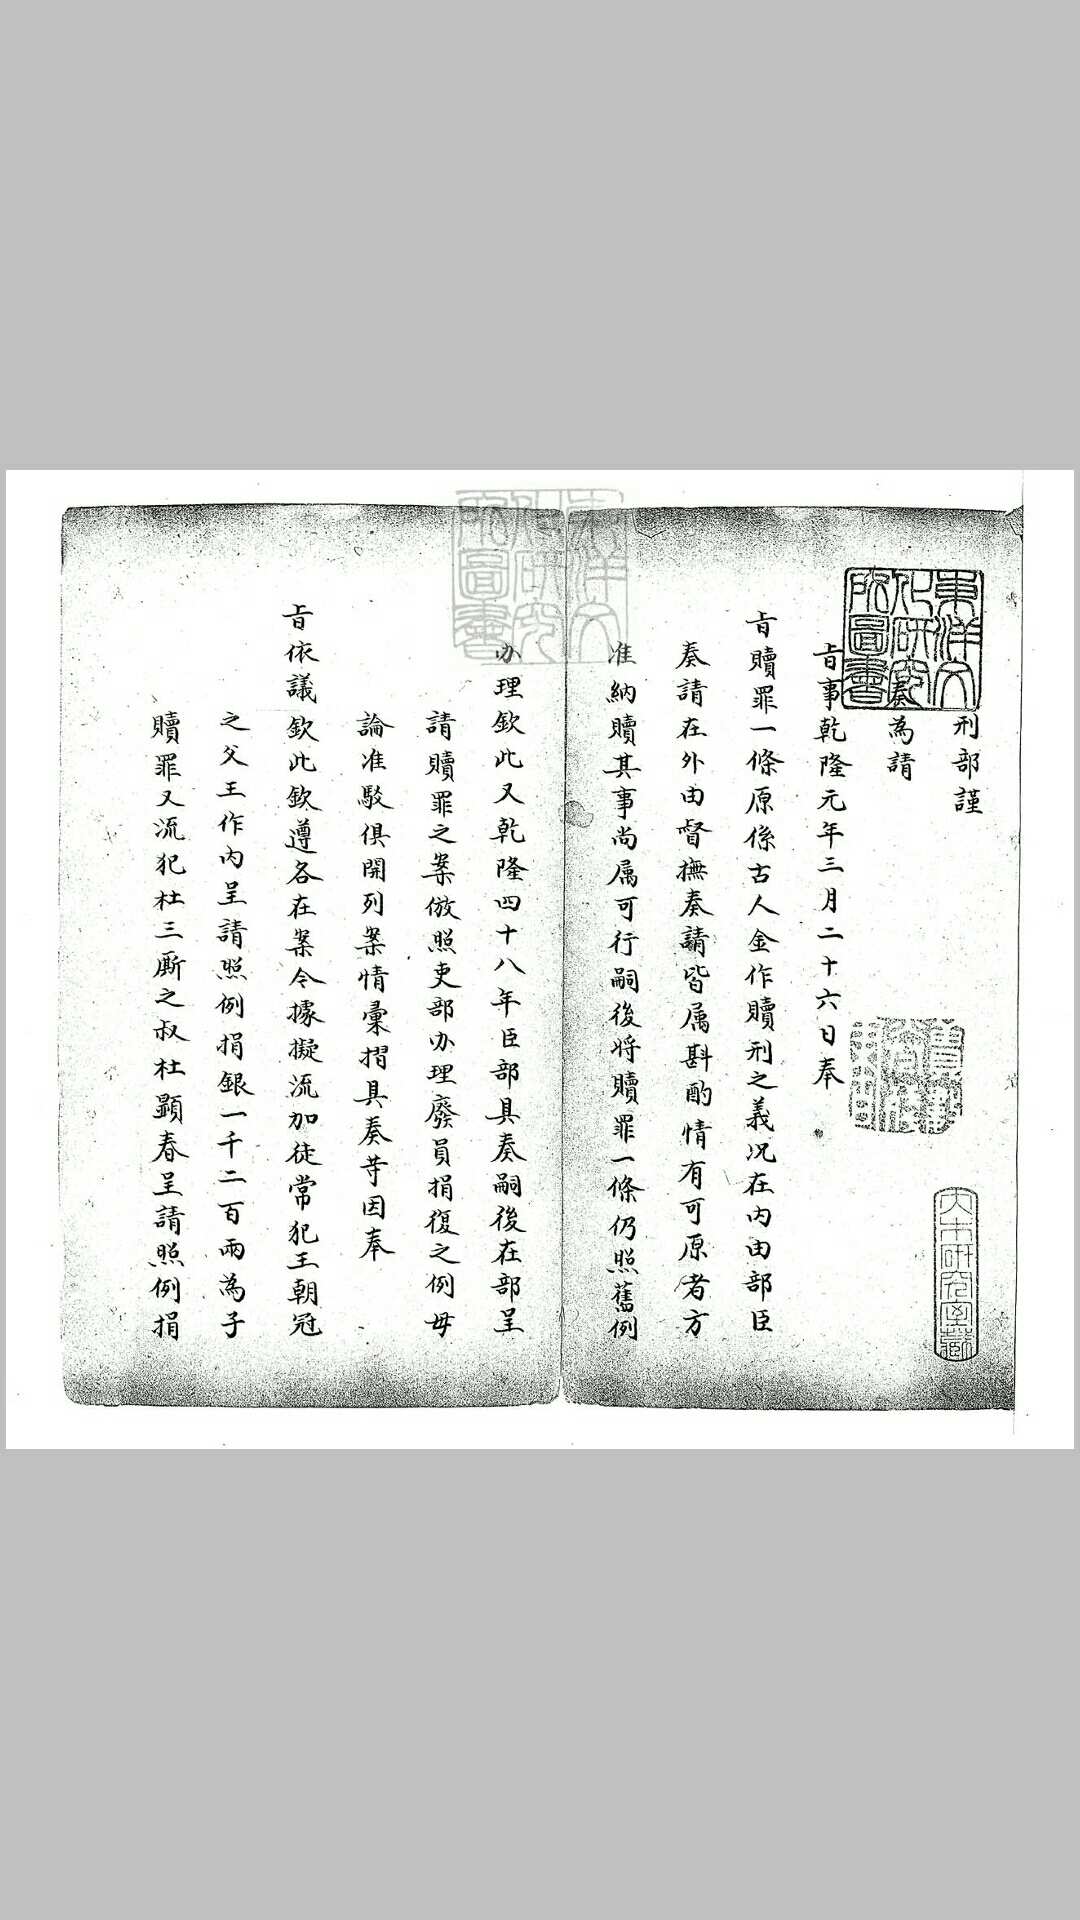 刑部謹
奏為請
旨事乾隆元年三月二十六日奉
旨贖罪一條原係古人金作贖刑之義况在內由部臣
奏請在外由督撫奏請皆属斟酌情有可原者方
准納贖其事尚属可行嗣後將贖罪一條仍照舊例
办理欽此又乾隆四十八年臣部具奏嗣後在部呈
請贖罪之案倣照吏部办理廢員捐復之例毋
論准駁俱開列案情彙摺具奏䓁因奉
旨依議欽此欽遵各在案令據擬流加徒常犯王朝冠
之父王作內呈請照例捐銀一千二百兩為子
贖罪又流犯杜三厮之叔杜顕春呈請照例捐
東洋文
化研究
所圖書
大木研究室藏